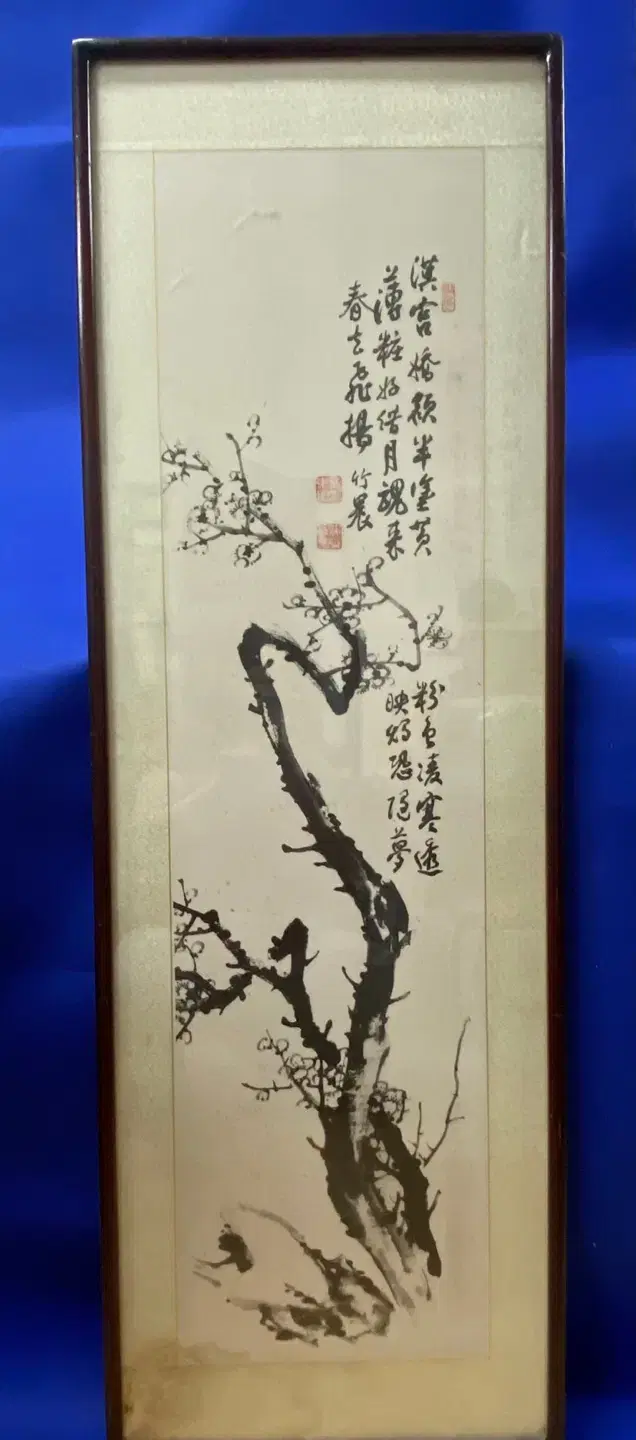 漢宮嬌額半塗黃
粉色凌寒透
薄粧好借月魂来
映燭恐隨夢
春去飛揚 竹